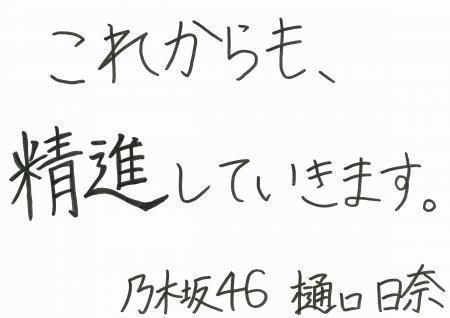 これからも、
精進していきます。
乃木坂46 樋口日奈